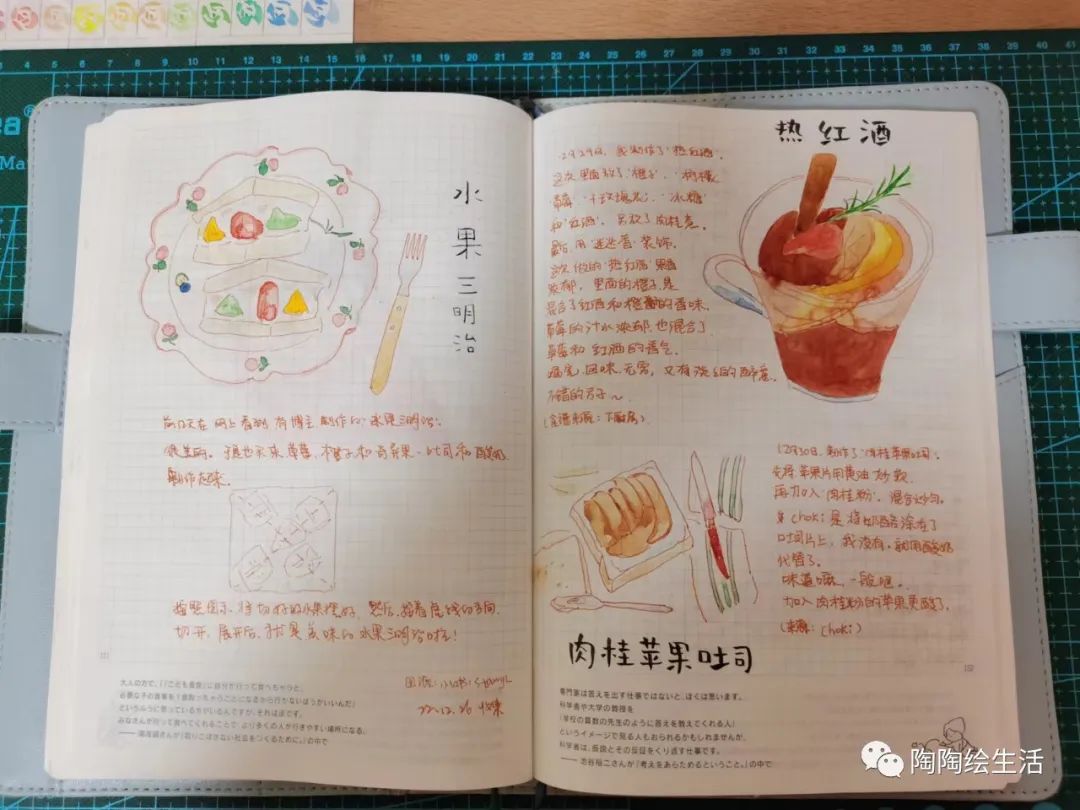 水果三明治
前几天在网上看到有博主制作的"水果三明治".
很美丽。于是也买来草莓、橙子和奇异果、吐司和酸奶
制作起来.
按照图示,将切好的水果摆好,然后,沿着虚线的方向
切开,展开后,就是美味的水果三明治啦!
22.12.26
大人の方で、「『こども食堂』に自分が行って食べちゃうと、
必要な子の食事を1食奪っちゃうことになるから行かないほうがいいんだ」
というふうに思っている方がいるんですが、それは逆です。
みなさんが行って食べてくれることで、より多くの人が行きやすい場所になる。
——湯浅誠さんが『取りこぼさない社会をつくるために。』の中で
热红酒
12月29日,我制作了"热红酒".
这次里面放了"橙子"、"柠檬"
"草莓"、"干玫瑰花"、"冰糖"
和"红酒",另放了肉桂卷。
最后,用"迷迭香"装饰。
这次做的"热红酒"果香
浓郁,里面的橙子,是
混合了红酒和橙的香味.
草莓的汁水浓郁,也混合了
草莓和红酒的香气.
喝完,回味无穷,又有浅浅的醉意.
不错的方子~
(食谱来源:下厨房)
12月30日,制作了"肉桂苹果吐司".
先将苹果片用黄油炒软.
再加入"肉桂粉",混合炒匀.
choki是将奶酪涂在了
吐司片上,我没有,就用酸奶
代替了。
味道嘛,一般吧.
加入肉桂粉的苹果更酸了.
(来源:choki)
肉桂苹果吐司
専門家は答えを出す仕事ではないと、ぼくは思います。
科学者や大学の教授を
「学校の算数の先生のように答えを教えてくれる人」
というイメージで見る人もおられるかもしれませんが、
科学者は、仮説とその反証をくり返す仕事です。
——池谷裕二さんが『考えをあらためるということ。』の中で
陶陶绘生活